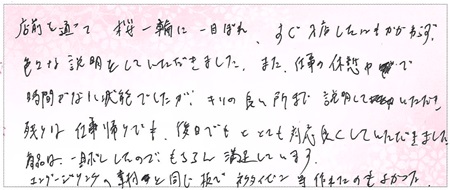 店前を通って 桜一輪に一目ぼれ、すぐ入店したにもかかわらず、
色々な説明をしていただきました。また、仕事の休憩中で
時間がない状態でしたが、キリの良い所まで説明していただき、
残りは仕事帰りでも、後日でもととても対応良くしていただきました
商品は、一目ぼれしたので、もちろん満足しています。
エンゲージリングの素材と同じ板でネクタイピンを作れたのもよかった。